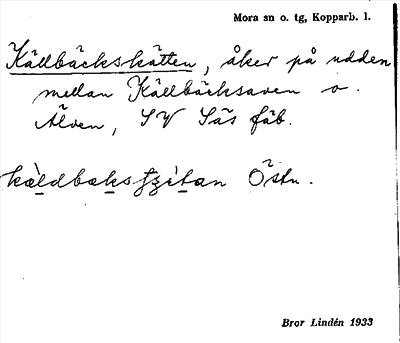 Mora sn o. tg, Kopparb. l.
Källbäckskätten, åker på udden
mellan Källbäcksaven o.
Älven, SV Säs fäb.
Östn.
Bror Lindén 1933